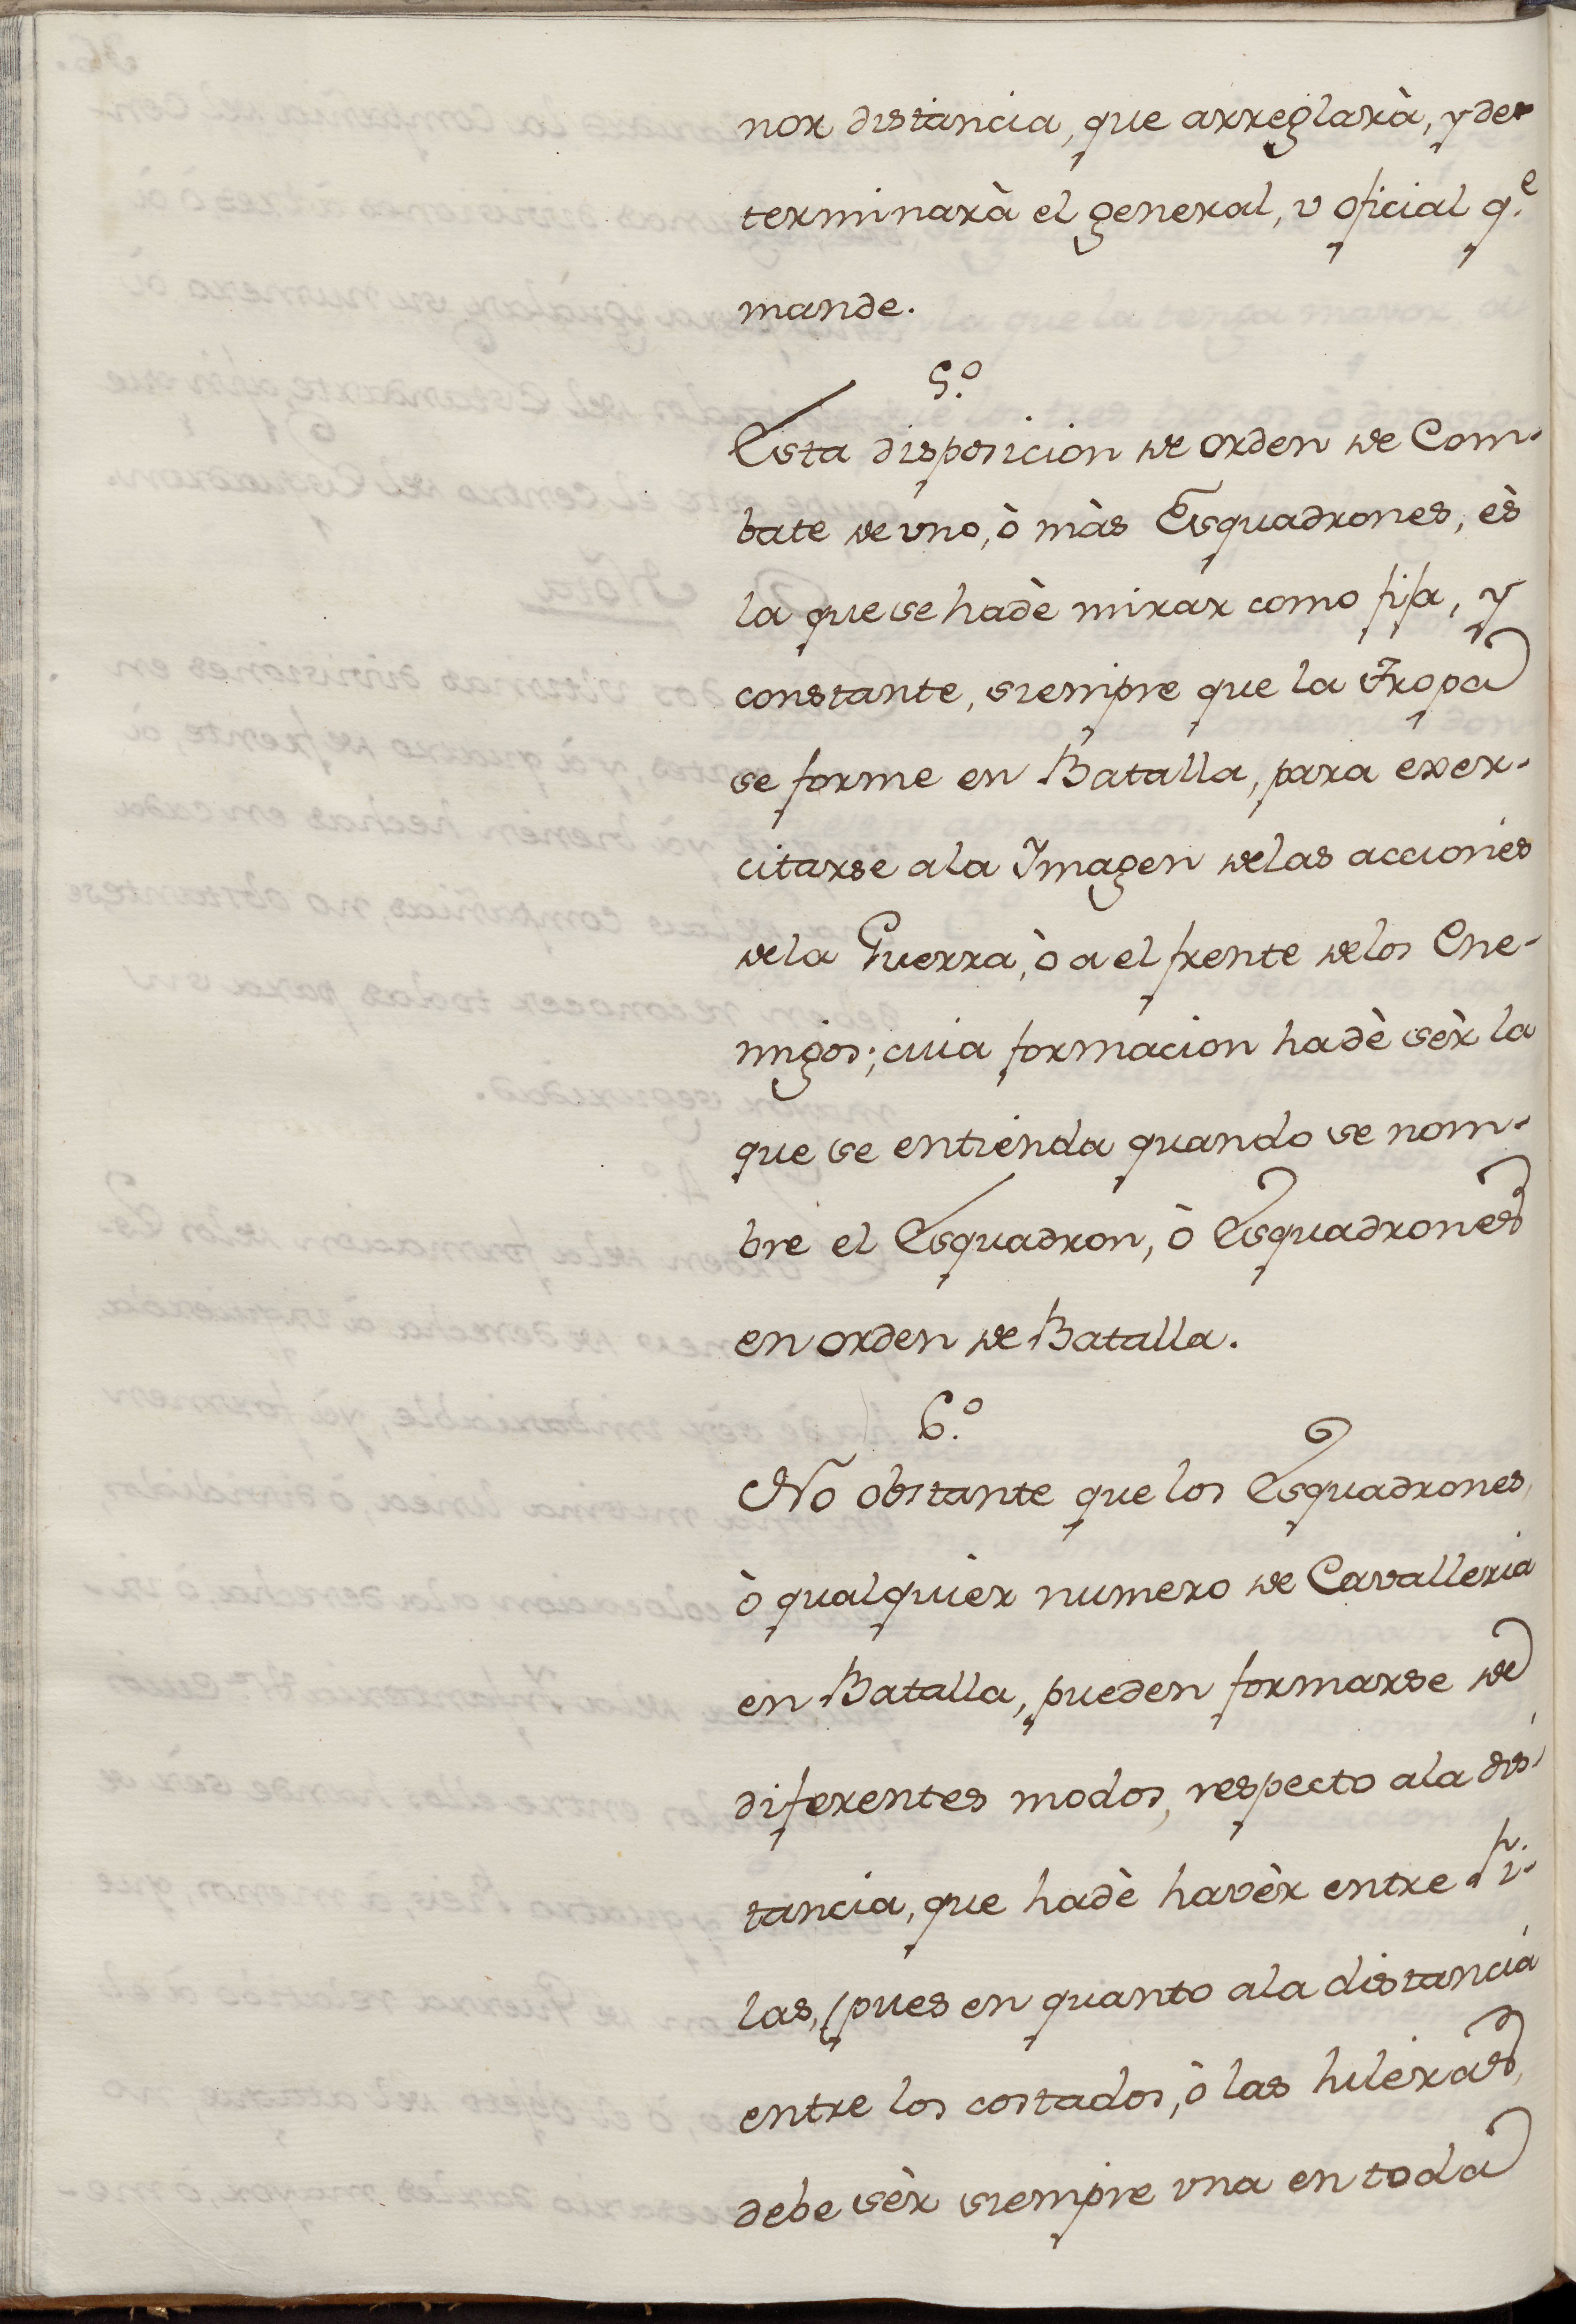 nor distancia, que arreglarà, y de-
terminarà el general, v oficial q.e
mande.
5.o
Esta disposicion de orden de Com-
bate de vno, ò màs Esquadrones, ès
la que se hadè mirar como fija, y
constante, siempre que la Tropa
se forme en Batalla, para exer-
citarse ala Imagen delas acciones
dela Guerra, ò a el frente delos Ene-
migos; cuia formacion hadè sèr la
que se entienda quando se nom-
bre el Esquadron, ò Esquadrones
en orden de Batalla.
6.o
No obstante que los Esquadrones,
ò qualquièr numero de Cavalleria
en Batalla, pueden formarse de
diferentes modos, respecto ala dis-
tancia, que hadè havèr entre fi-
las, (pues en quanto ala distancia
entre los costados, ò las hileras,
debe sèr siempre vna en toda